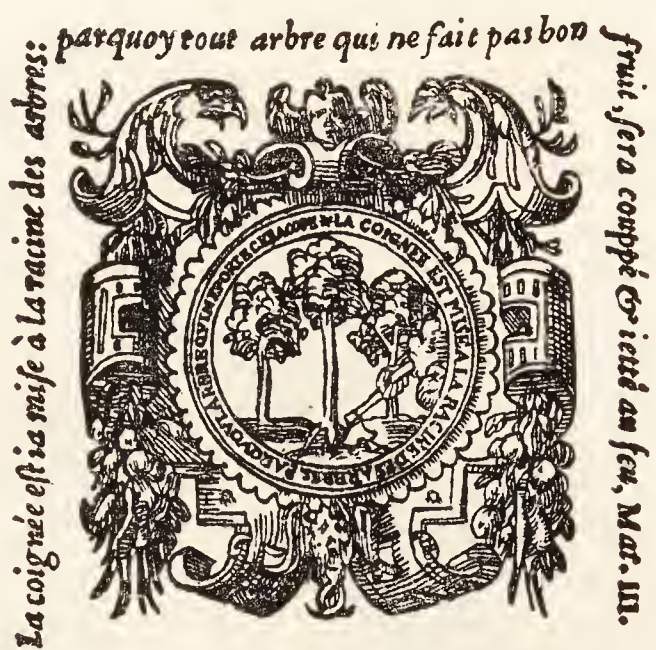 La coignée est ia mise à la racine des arbres:
parquoy tout arbre qui ne fait pas bon
fruit, sera couppé & ietté au feu, Mat. III.
LA COIGNEE EST MISE A LA RACINE DES ARBRES PARQVOY ARBRE QVI